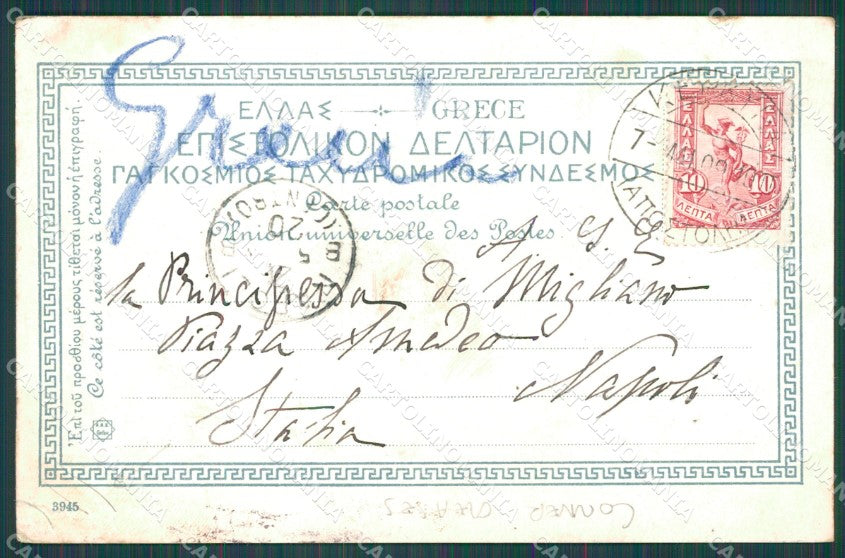 Greci
ΕΛΛΑΣ GRECE
ΕΠΙΣΤΟΛΙΚΟΝ ΔΕΛΤΑΡΙΟΝ
ΠΑΓΚΟΣΜΙΟΣ ΤΑΧΥΔΡΟΜΙΚΟΣ ΣΥΝΔΕΣΜΟΣ
Carte postale
Union universelle des Postes
ΕΛΛΑΣ
ΕΛΛΑΣ
10 10
ΛΕΠΤΑ ΛΕΠΤΑ
A S. E.
la Principessa di Migliano
Piazza Amedeo
Napoli
Italia
Ἐπὶ τοῦ προσθίου μέρους τίθεται μόνον ἡ ἐπιγραφή.
Ce côté est réservé à l'adresse.
3945
CARTOLINOMANIA